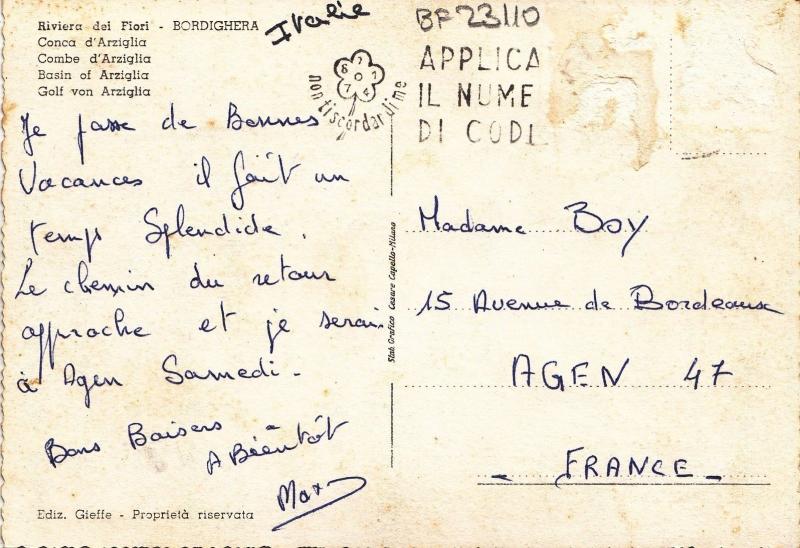 Riviera dei Fiori - BORDIGHERA
Conca d'Arziglia
Combe d'Arziglia
Basin of Arziglia
Golf von Arziglia
Italie
BF 23110
nontiscordardime
APPLICA
IL NUME
DI CODI
Je passe de Bonnes
Vacances il fait un
temps Splendide.
Le chemin du retour
approche et je serais
à Agen Samedi.
Bons Baisers
A Bientôt
Max
Ediz. Gieffe - Proprietà riservata
Stab. Grafico Cesare Capello-Milano
Madame BOY
15 Avenue de Bordeaux
AGEN 47
- FRANCE -